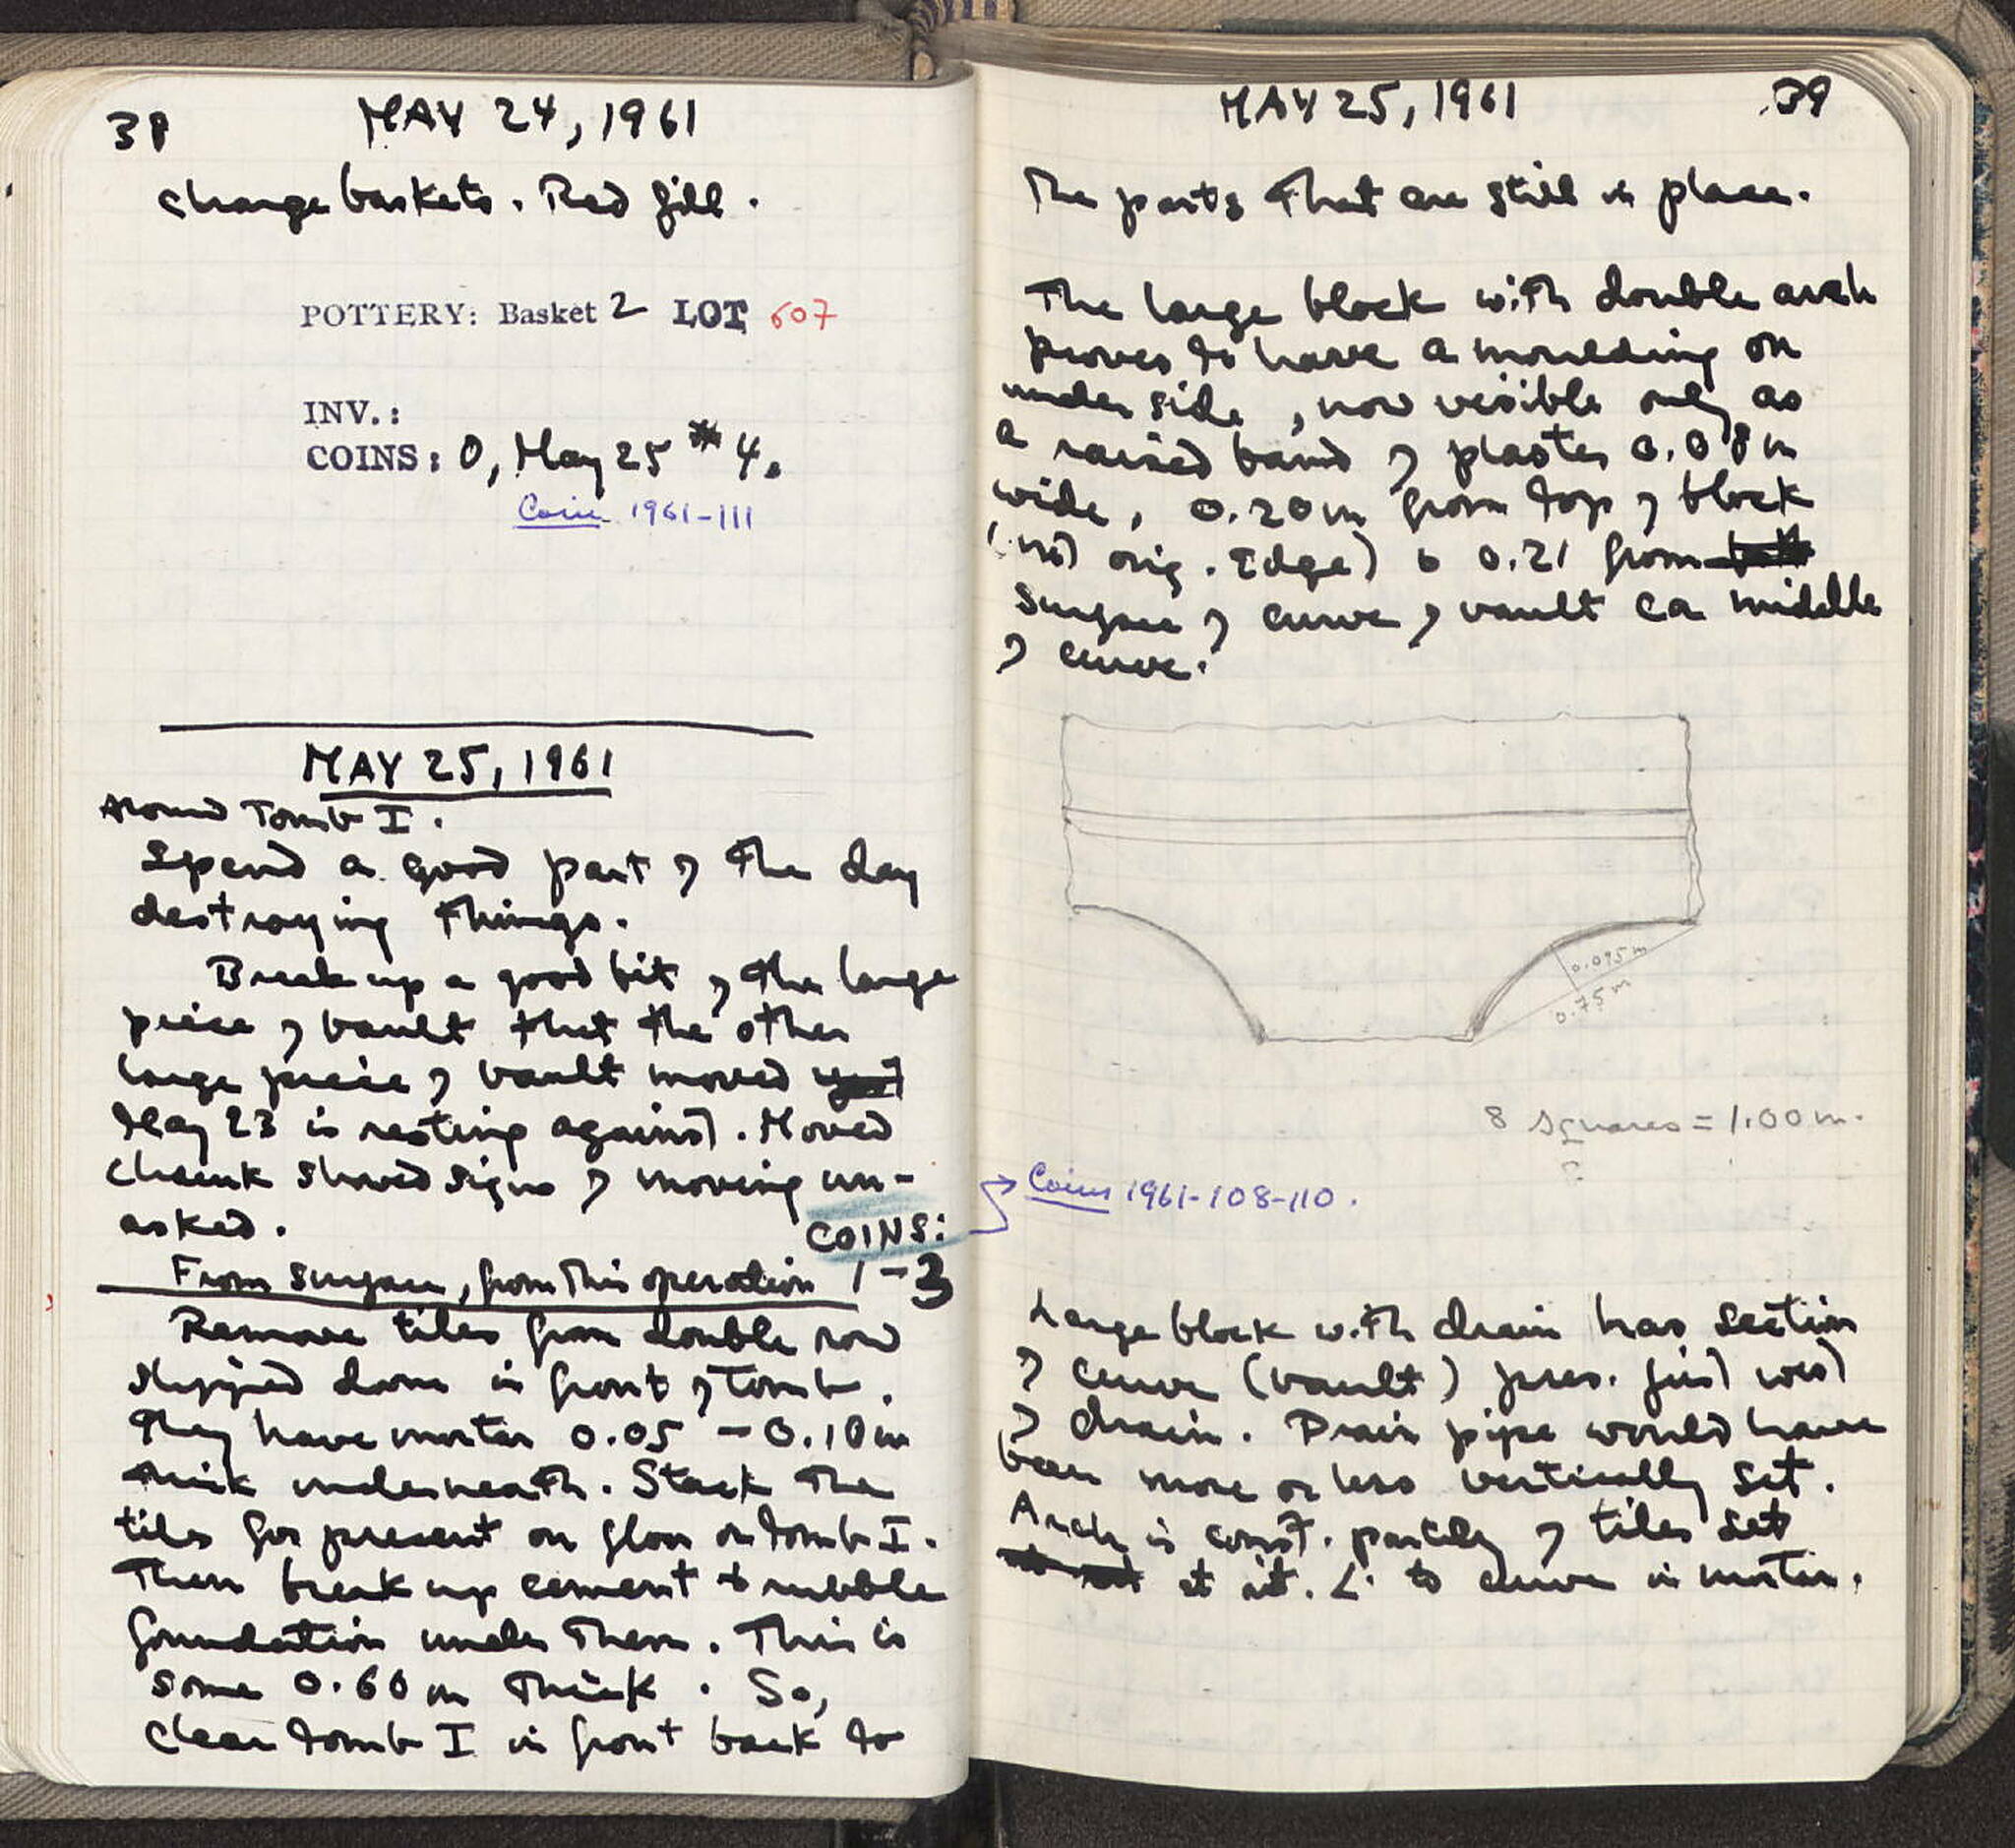 38
MAY 24, 1961
change baskets. Red fill.
POTTERY: Basket 2 LOT 607
INV.:
COINS: 0, May 25 #4.
Coin 1961-111
MAY 25, 1961
Around Tomb I.
Spend a good part of the day
destroying things.
Break up a good bit of the large
piece of vault that the other
large piece of vault moved
May 23 is resting against. Moved
chunk showed signs of moving un-
asked.
COINS:
From surface, from this operation 1-3
Remove tiles from double row
slipped down in front of Tomb.
They have mortar 0.05 - 0.10 m
thick underneath. Stack the
tiles for present on floor on tomb I.
Then break up cement & rubble
foundation under them. This is
some 0.60 m thick. So,
clear tomb I in front back to
MAY 25, 1961
39
the parts that are still in place.
The large block with double arch
proves to have a moulding on
under side, now visible only as
a raised band of plaster 0.08 m
wide, 0.20 m from top of block
(not orig. Edge) & 0.21 from
surface of curve of vault ca middle
of curve.
0.095 m
0.75 m
8 squares = 1.00 m.
Coins 1961-108-110.
Large block with drain has section
of curve (vault) pres. just west
of drain. Drain pipe would have
been more or less vertically set.
Arch is const. partly of tiles set
at rt. L. to curve in mortar.